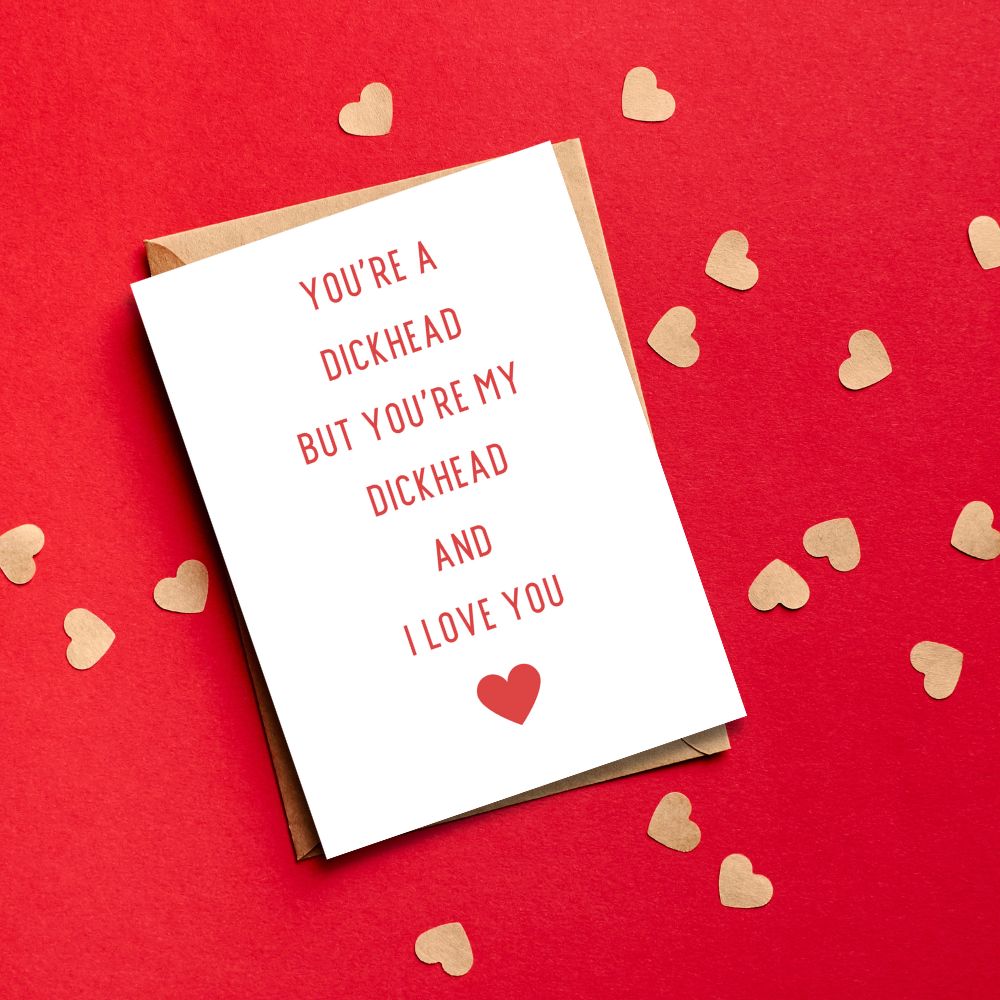 YOU'RE A
DICKHEAD
BUT YOU'RE MY
DICKHEAD
AND
I LOVE YOU